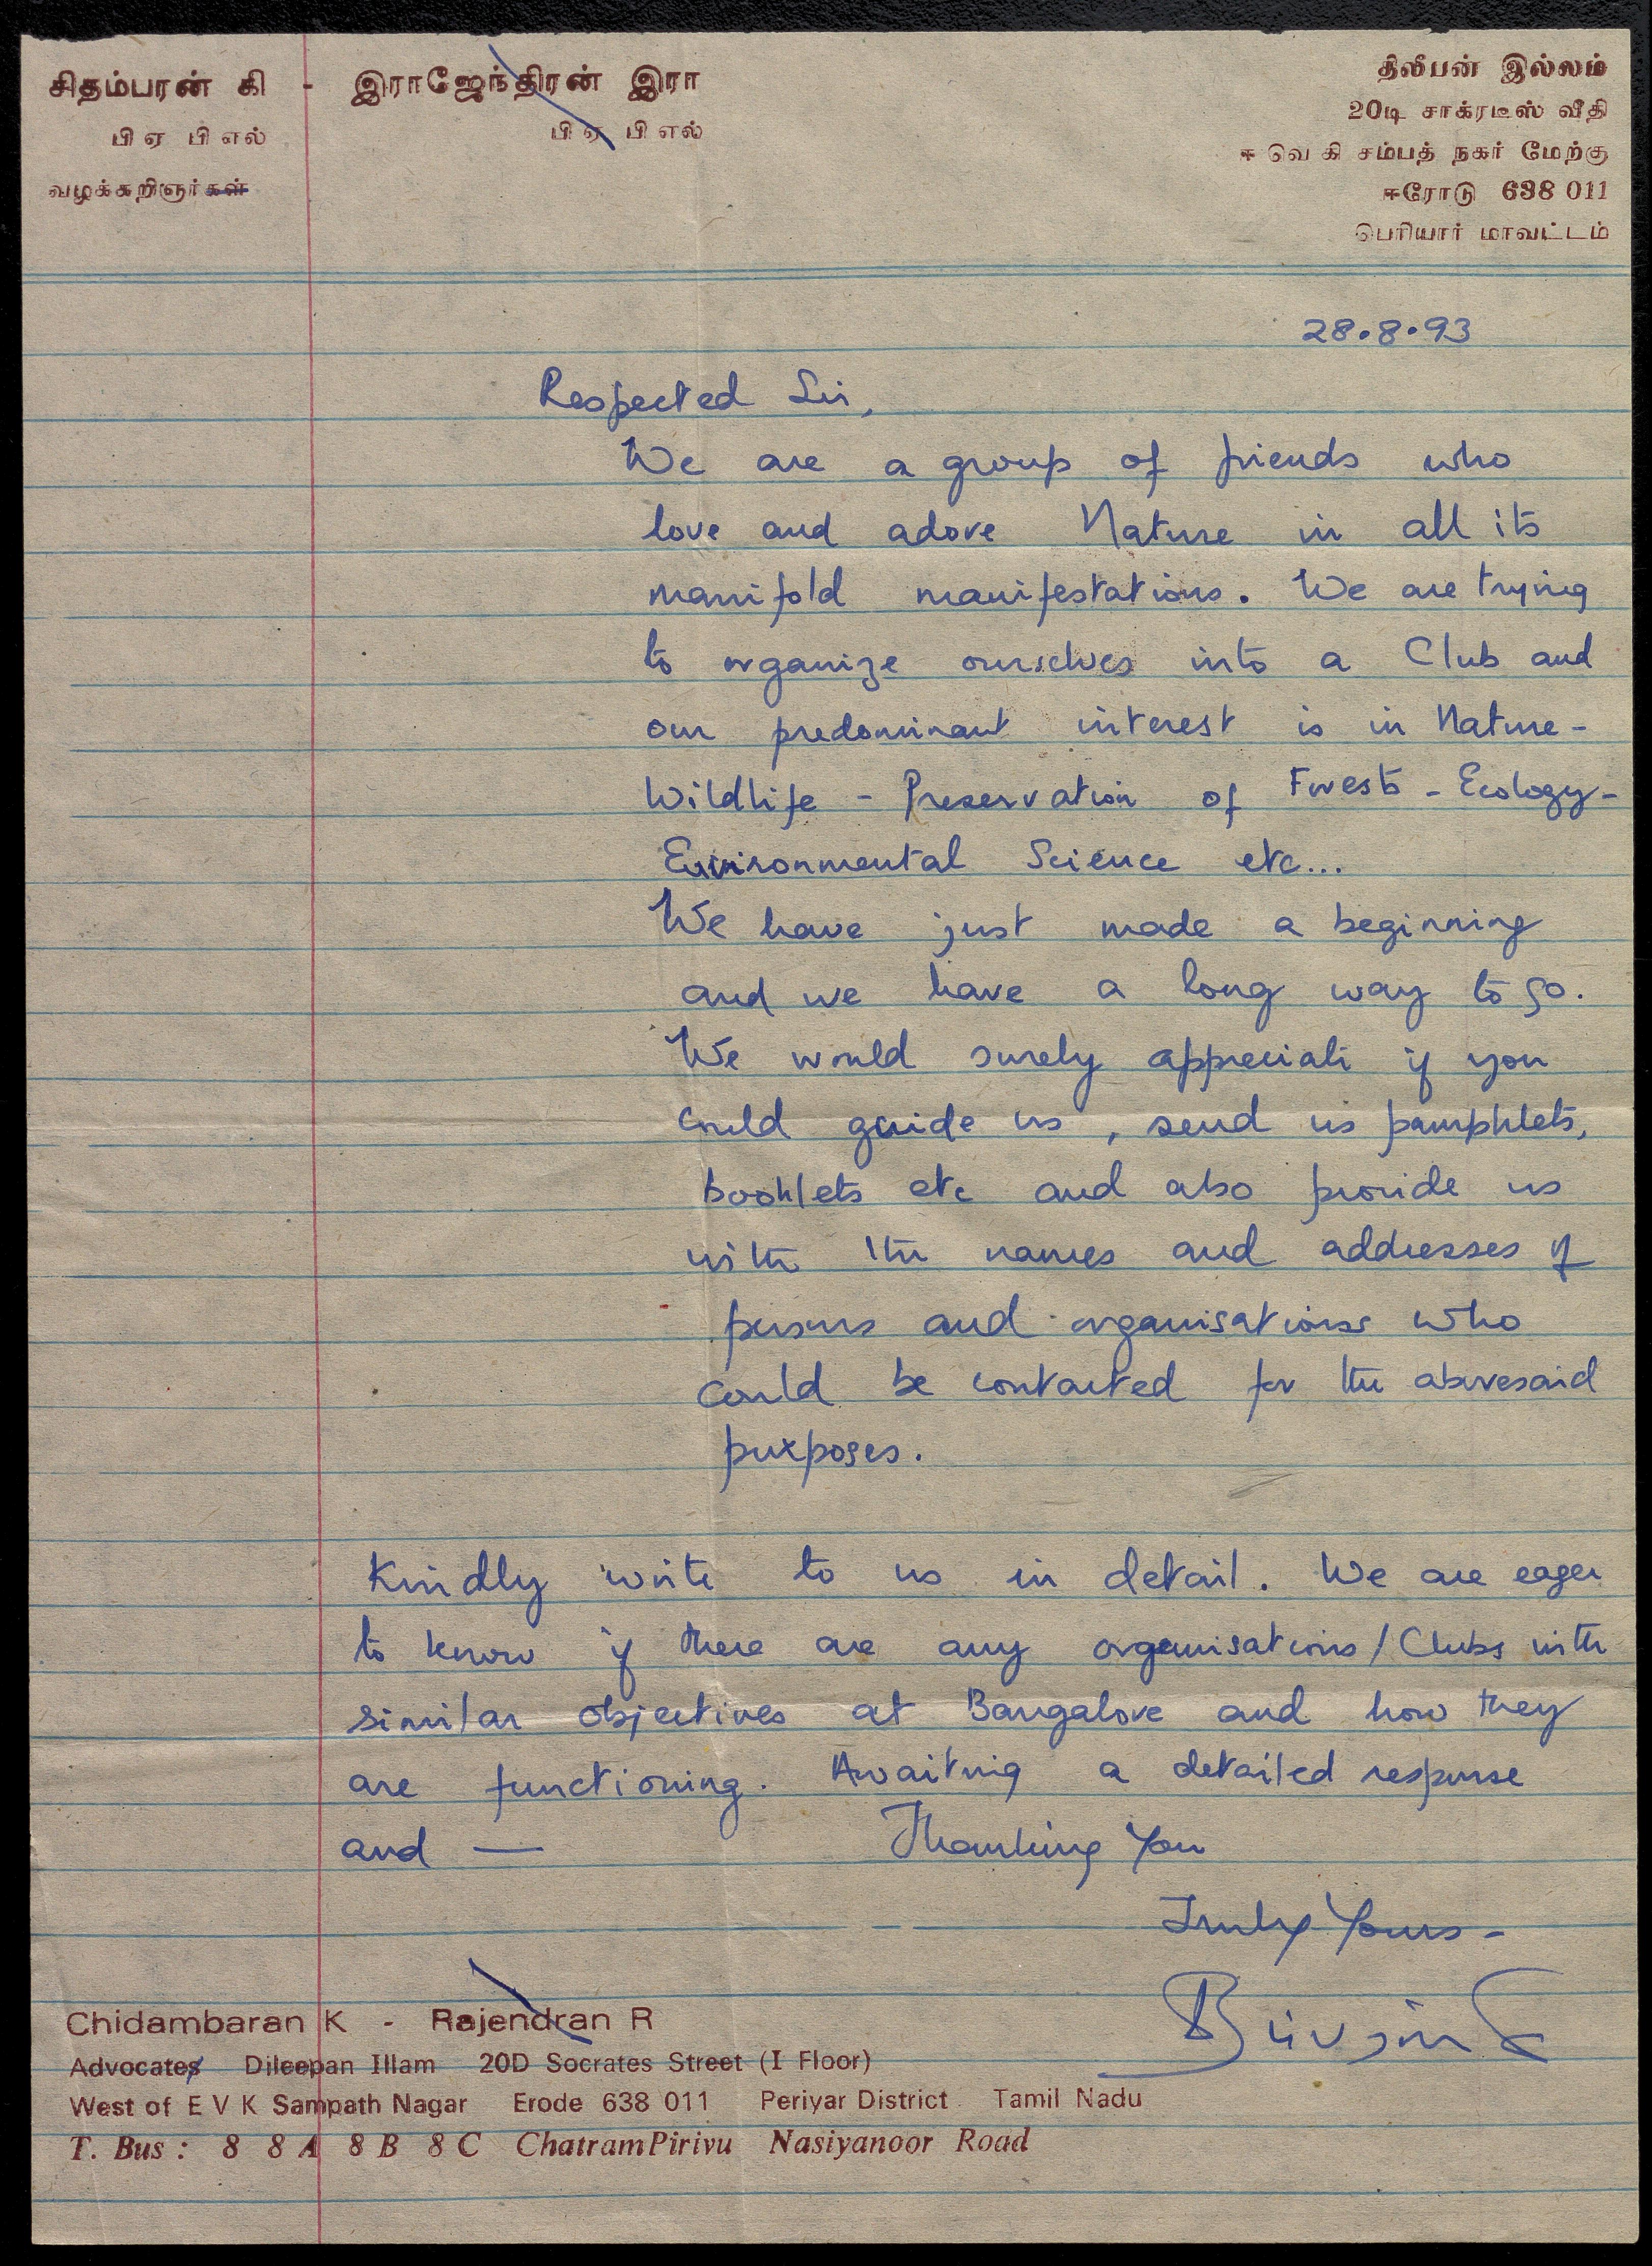 சிதம்பரன் கி - இராஜேந்திரன் இரா
பி ஏ பி எல் பி ஏ பி எல்
வழக்கறிஞர்கள்
திலீபன் இல்லம்
20டி சாக்ரடீஸ் வீதி
ஈ வெ கி சம்பத் நகர் மேற்கு
ஈரோடு 638 011
பெரியார் மாவட்டம்
28.8.93
Respected Sir,
We are a group of friends who
love and adore Nature in all its
manifold manifestations. We are trying
to organize ourselves into a Club and
our predominant interest is in Nature -
Wildlife - Preservation of Forests - Ecology -
Environmental Science etc...
We have just made a beginning
and we have a long way to go.
We would surely appreciate if you
could guide us, send us pamphlets,
booklets etc and also provide us
with the names and addresses of
persons and organisations who
could be contacted for the abovesaid
purposes.
Kindly write to us in detail. We are eager
to know if there are any organisations/Clubs with
similar objectives at Bangalore and how they
are functioning. Awaiting a detailed response
and — Thanking You
Truly Yours -
Chidambaran K - Rajendran R
Advocates Dileepan Illam 20D Socrates Street (I Floor)
West of E V K Sampath Nagar Erode 638 011 Periyar District Tamil Nadu
T. Bus : 8 8A 8B 8C ChatramPirivu Nasiyanoor Road